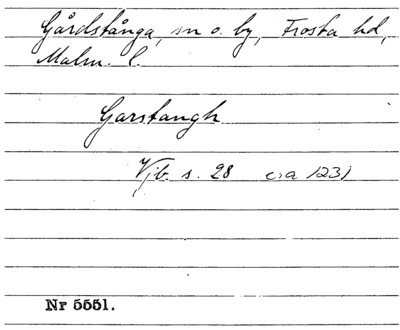 Gårdstånga, sn o. by, Frosta hd,
Malm. l.
Garstangh
Vjb. s. 28 c:a 1231
Nr 5551.